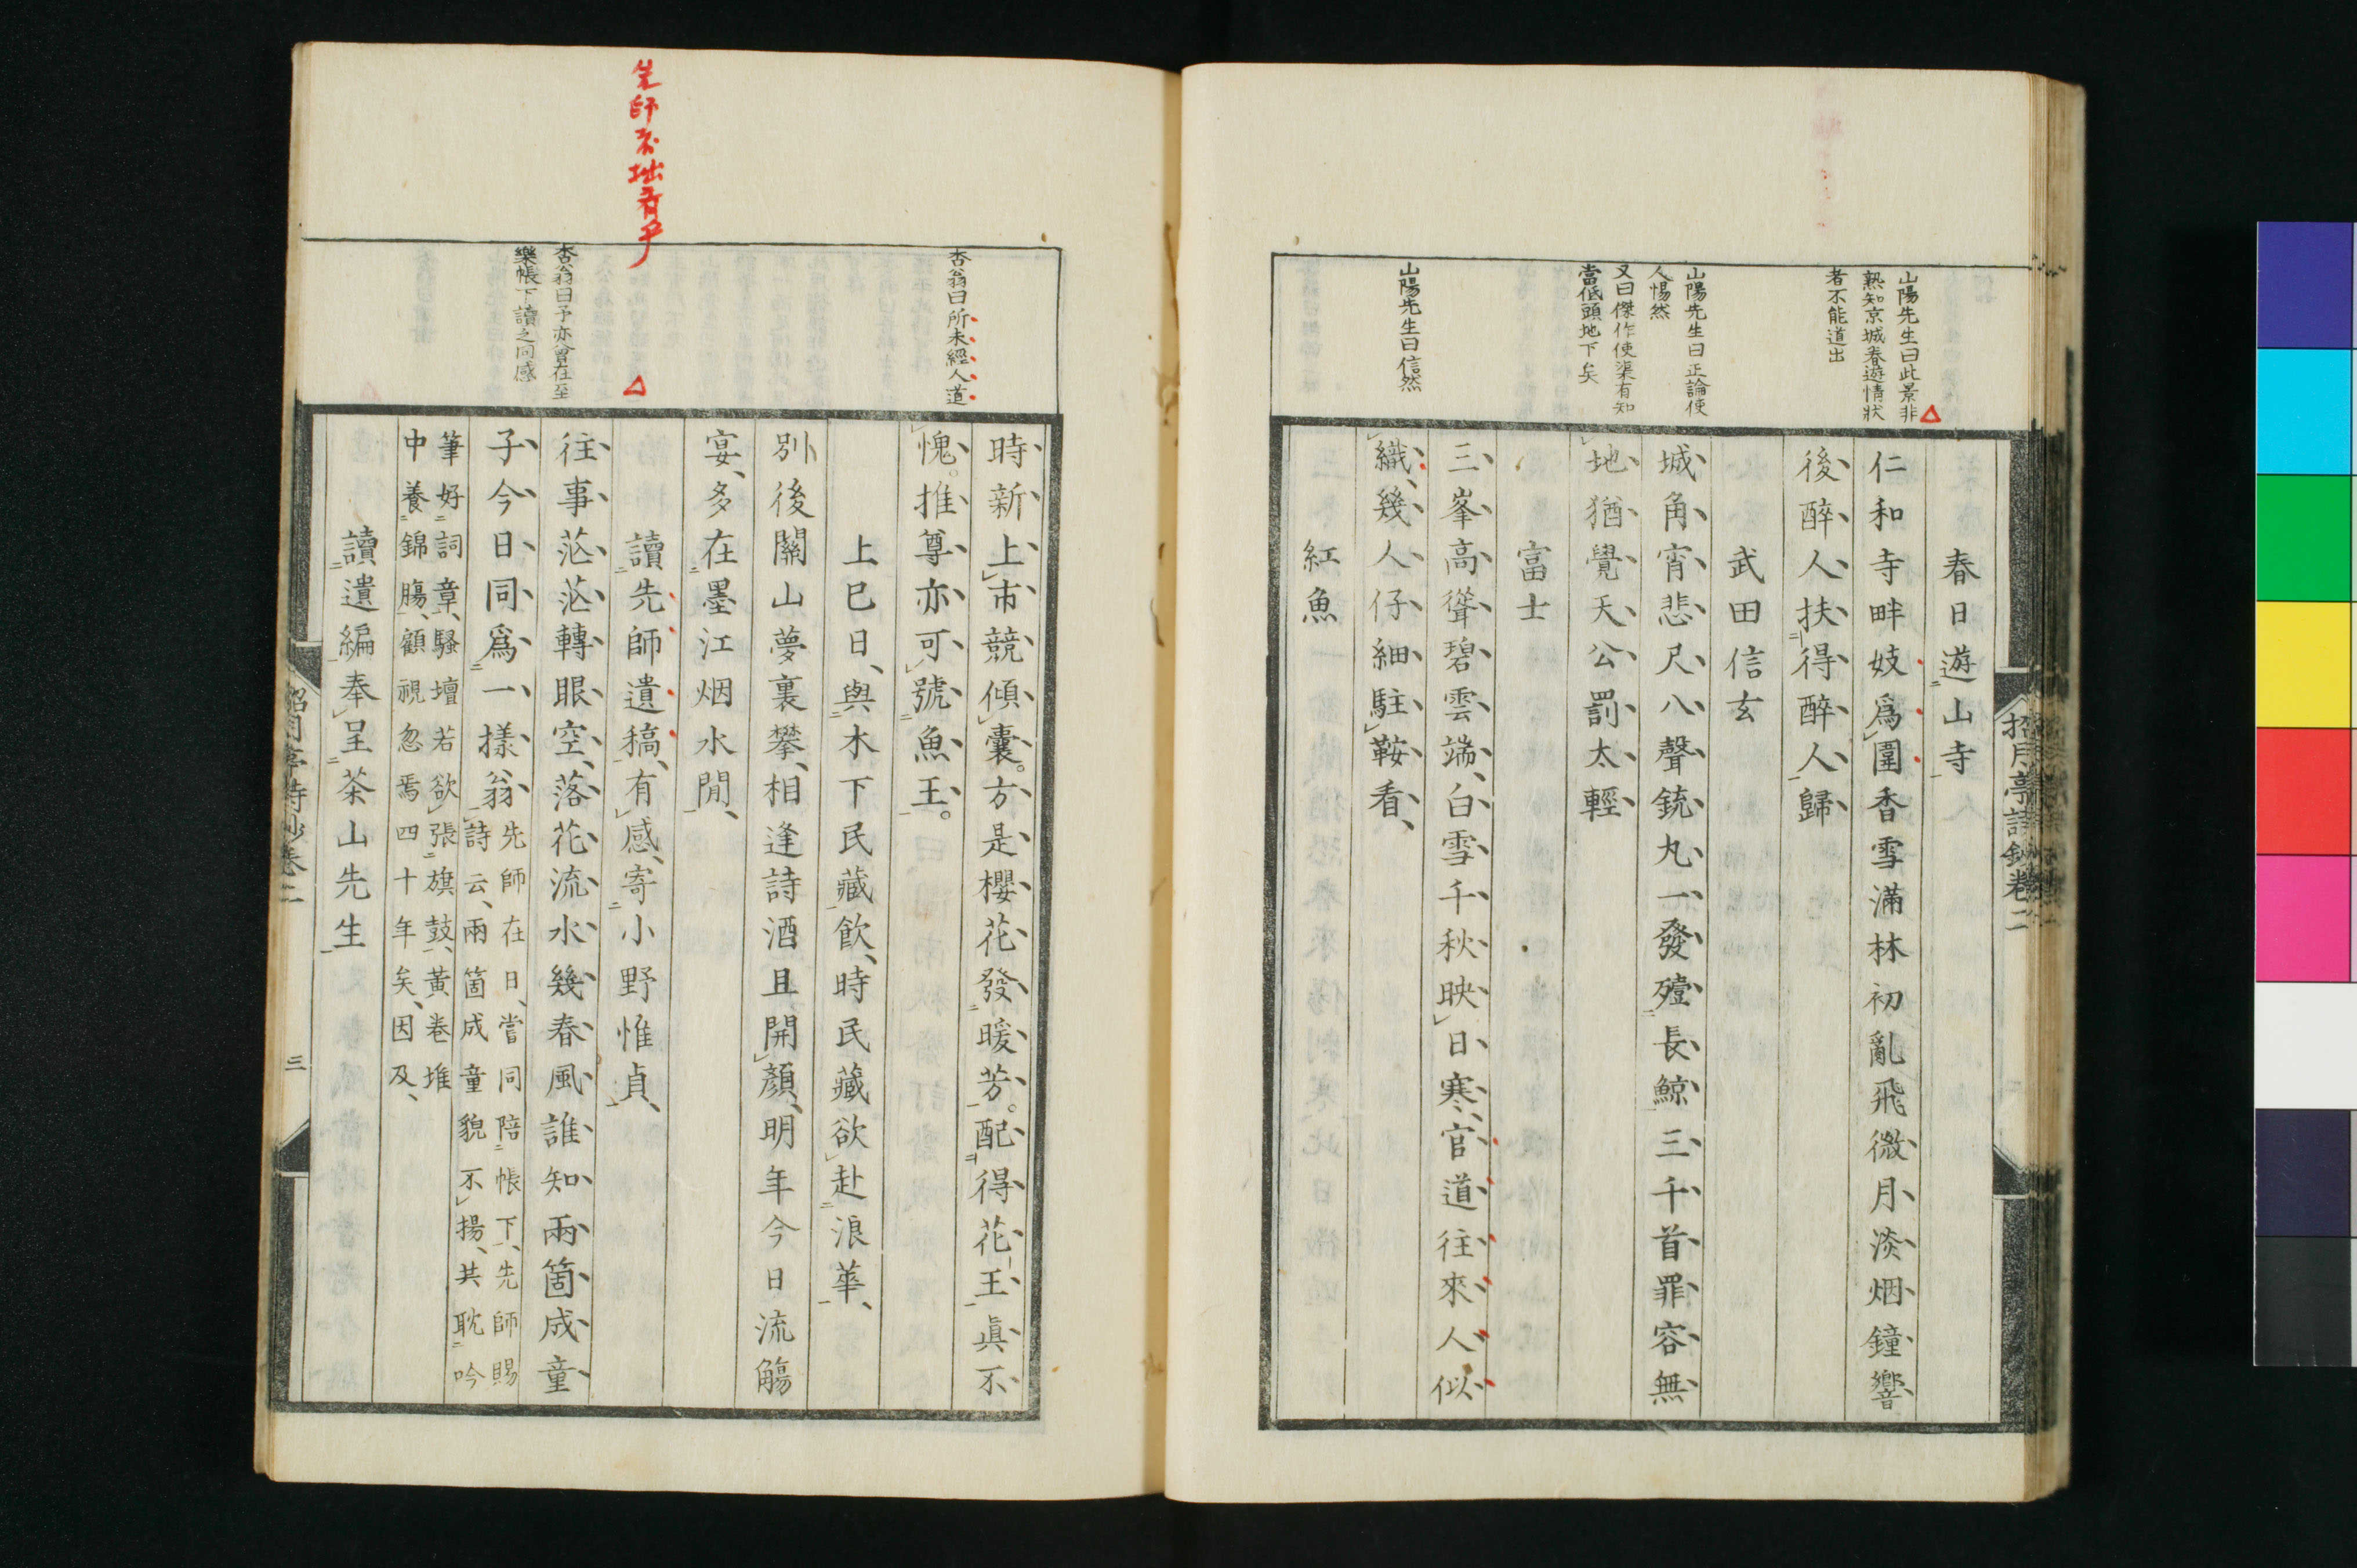 山陽先生曰此景非
熟知京城春遊情狀
者不能道出
山陽先生曰正論使
人惕然
又曰傑作使渠有知
當低頭地下矣
山陽先生曰信然
招月亭詩鈔卷二
春日遊山寺
仁和寺畔妓爲圍香雪滿林初亂飛微月淡烟鐘響
後醉人扶得醉人歸
武田信玄
城角宵悲尺八聲銃丸一發殪長鯨三千首罪容無
地猶覺天公罰太輕
富士
三峯高聳碧雲端白雪千秋映日寒官道往來人似
織幾人仔細駐鞍看
紅魚
杏翁曰所未經人道
先師
杏翁曰予亦曾在至
樂帳下讀之同感
時新上市競傾囊方是櫻花發暖芳配得花王眞不
愧推尊亦可號魚王
上巳日與木下民藏飲時民藏欲赴浪華
別後關山夢裏攀相逢詩酒且開顏明年今日流觴
宴多在墨江烟水閒
讀先師遺稿有感寄小野惟貞
往事茫茫轉眼空落花流水幾春風誰知兩箇成童
子今日同爲一樣翁
先師在日嘗同陪帳下先師賜
詩云兩箇成童貌不揚共耽吟
筆好詞章騷壇若欲張旗鼓黃卷堆
中養錦腸顧視忽焉四十年矣因及
讀遺編奉呈茶山先生
招月亭詩鈔卷二
三